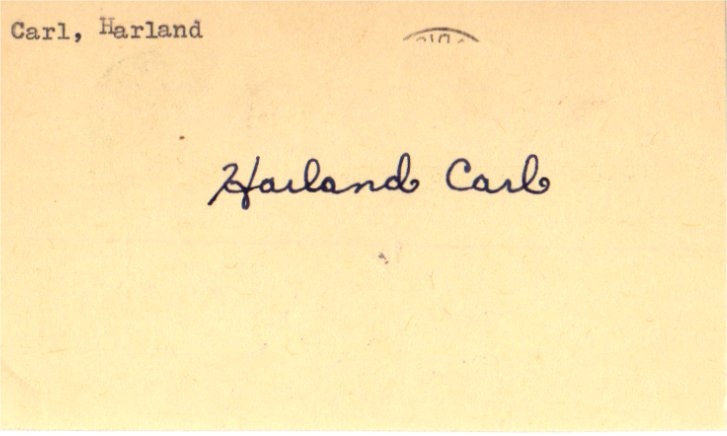 Carl, Harland
Harland Carl